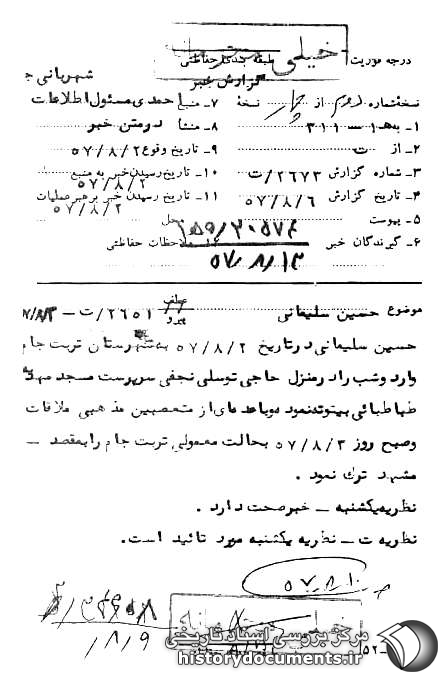 خیلی
درجه فوریت طبقه بندی حفاظتی
گزارش خبر
شهربانی
نسخه شماره از نسخه
۷- منبع احمدی مسئول اطلاعات
۱- به ۳۱۱
۸- منشا درمتن خبر
۲- از ت
۹- تاریخ وقوع ۵۷/۸/۲
۳- شماره گزارش ۲۶۷۳/ت
۱۰- تاریخ رسیدن خبر به منبع ۵۷/۸/۲
۴- تاریخ گزارش ۵۷/۸/۶
۱۱- تاریخ رسیدن خبر برهبر عملیات ۵۷/۸/۲
۵- پیوست
محل
۶- گیرندگان خبر
ملاحظات حفاظتی
۵۷/۸/۱۳
موضوع حسین سلیمانی
عطف
پیرو
۲۶۵۱/ت -
حسین سلیمانی درتاریخ ۵۷/۸/۲ به شهرستان تربت جام
وارد وشب رادرمنزل حاجی توسلی نجفی سرپرست مسجد
طباطبائی بیتوته نمود وباعده ای از متعصبین مذهبی ملاقات
وصبح روز ۵۷/۸/۳ بحالت معمولی تربت جام رابمقصد -
مشهد ترک نمود .
نظریه یکشنبه - خبرصحت دارد .
نظریه ت - نظریه یکشنبه مورد تائید است.
۵۷/۸/۱۰
۸/۹
مرکز بررسی اسناد تاریخی
historydocuments.ir